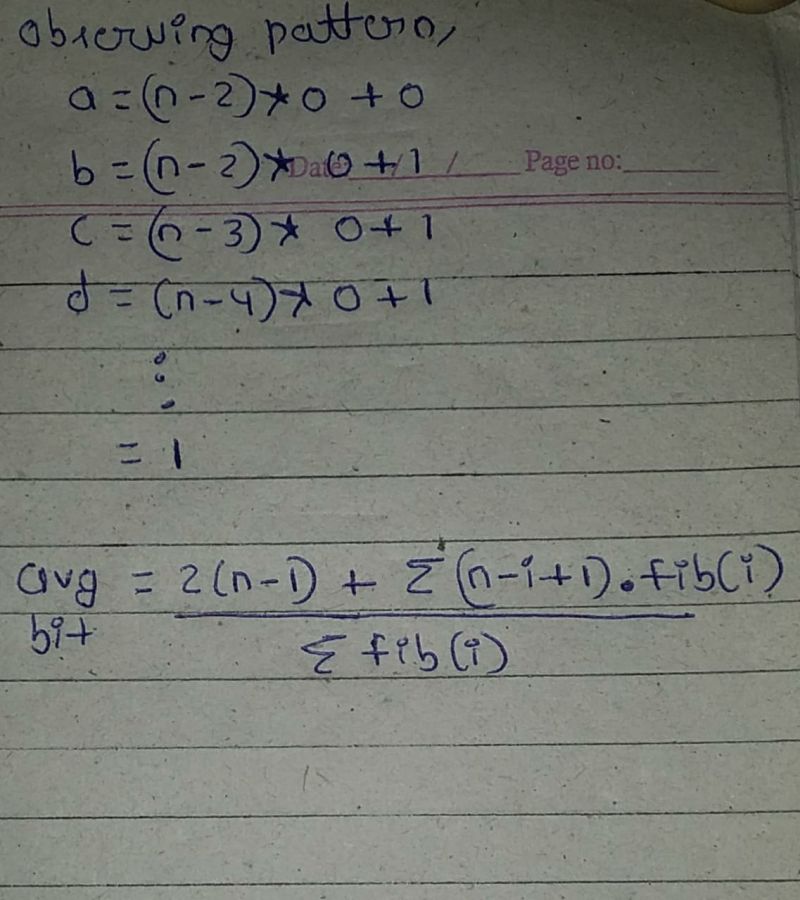 observing pattern,
a = (n-2)* 0 + 0
b = (n-2)* 0 + 1
Date / / Page no:
c = (n-3)* 0 + 1
d = (n-4)* 0 + 1
⋮
= 1
avg = 2(n-1) + Σ(n-i+1).fib(i)
bit
Σ fib(i)